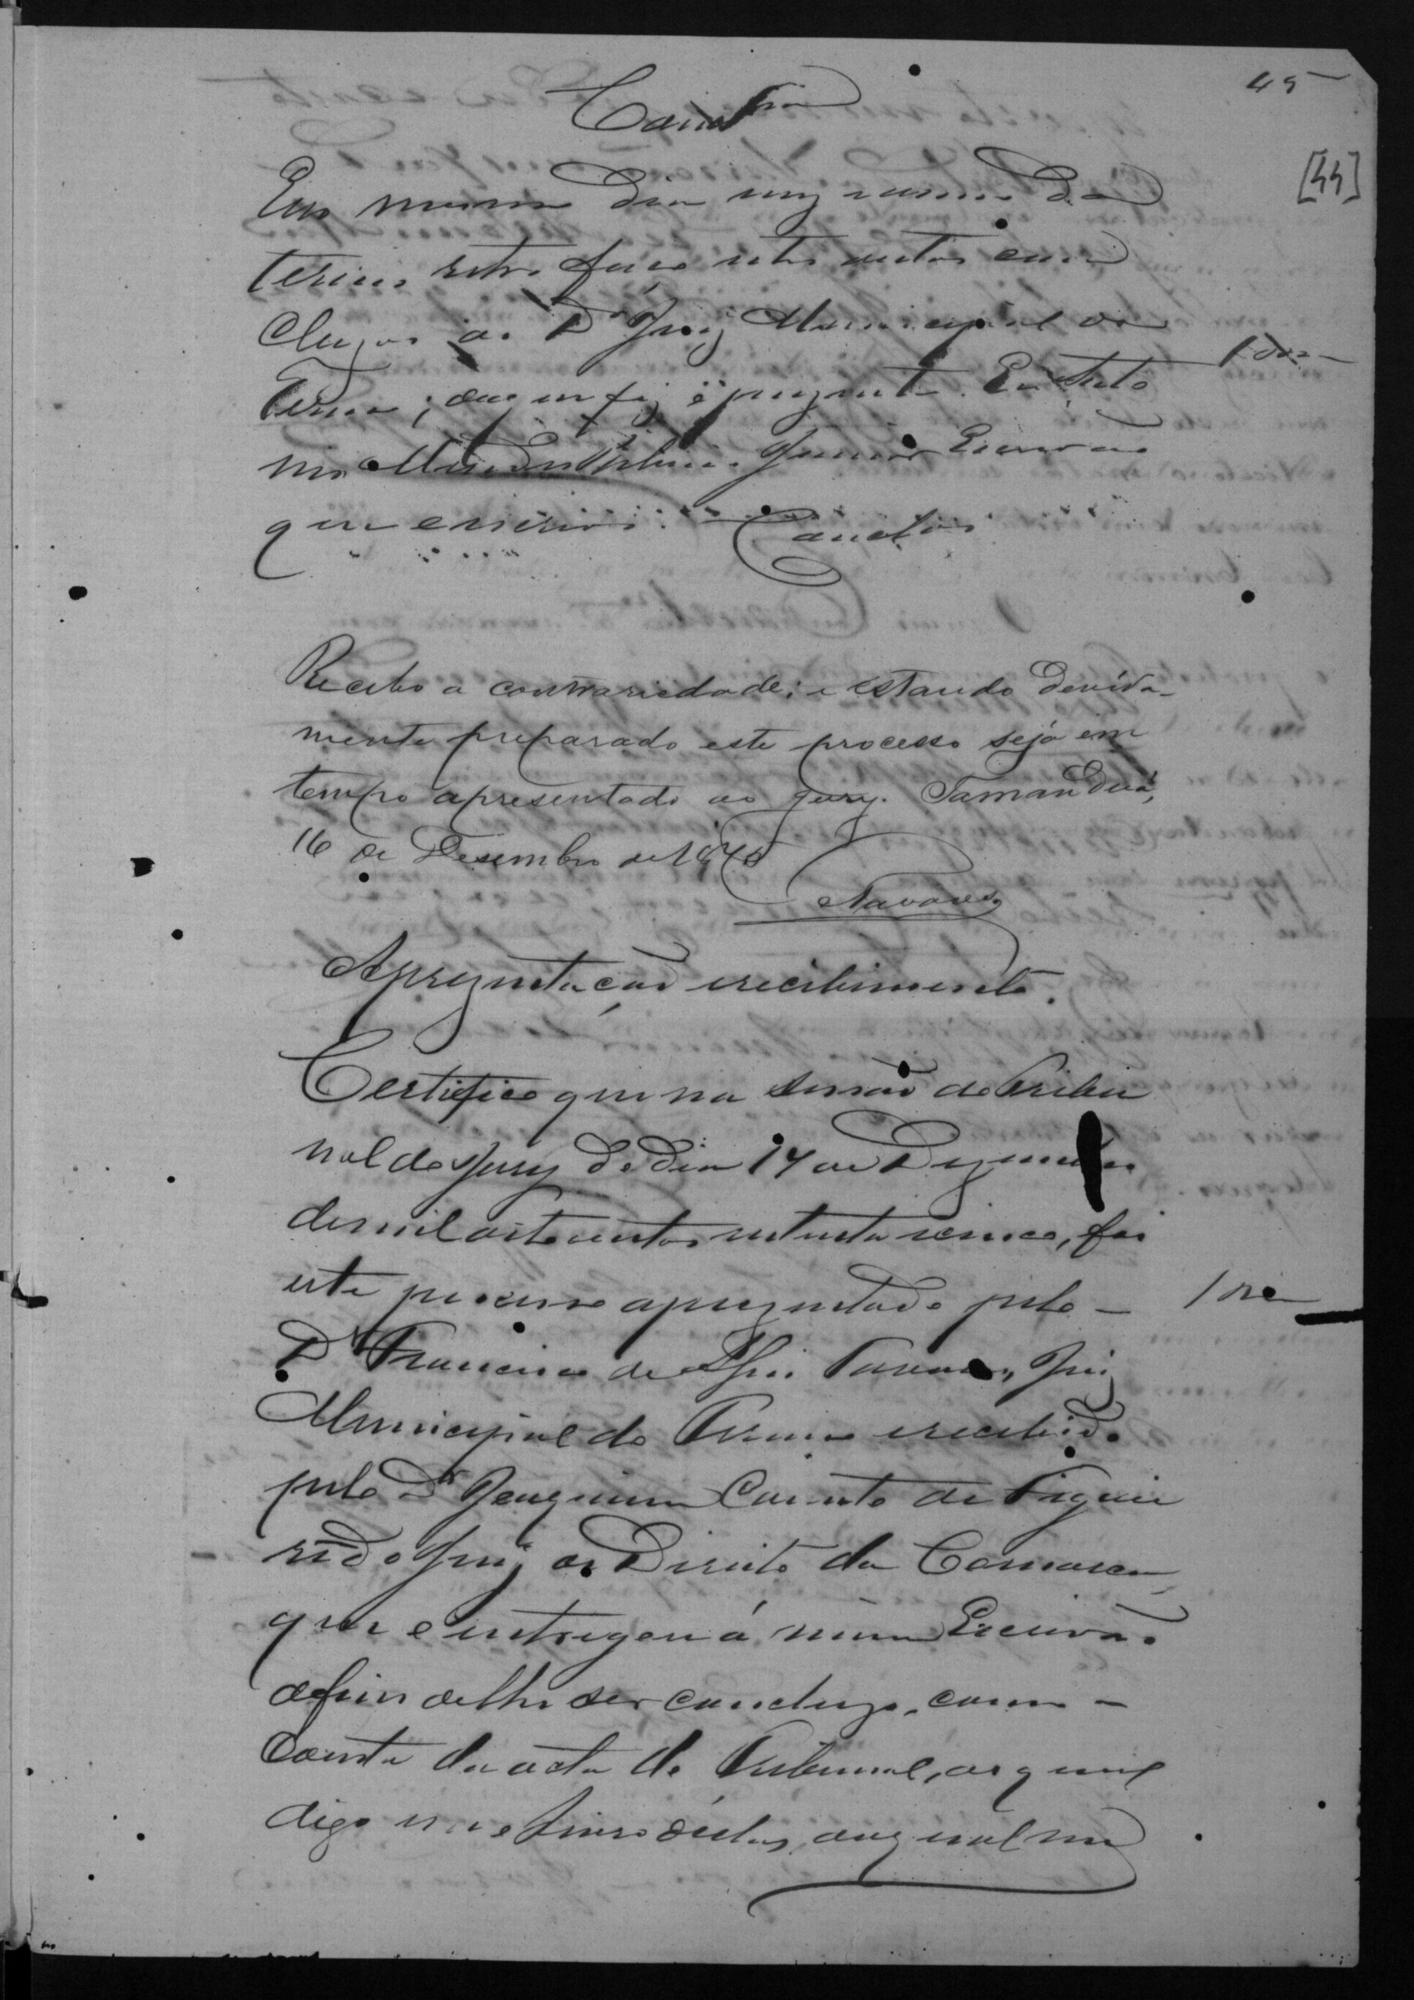 45
[44]
Concl.am
Em mesmo dia mez e anno do
termo retro faço estes autos con
cluzos ao Dr Juiz Municipal do
Termo; do que fiz o prezente. Eu
Junior Escrivão
que escrevi. Conclusos
Recebo a contrariedade; e estando devida-
mente preparado este processo seja em
tempo apresentado ao jury. Tamanduá,
16 de Desembro de 1875
Tavares
Aprezentação e recebimento.
Certifico que na sessão do Tribu
nal do Jury do dia 17 de Dezembro
de mil oitocentos setenta e cinco, foi
este processo aprezentado pelo -
Dr Francisco de Tavares, Juiz
Municipal do Termo e recebido
pelo Dr Joaquim de Figuei
redo Juiz de Direito da Comarca,
que entregou á mim Escrivão
afim de lhe ser concluzo, como -
consta da acta do Tribunal, do qual
digo